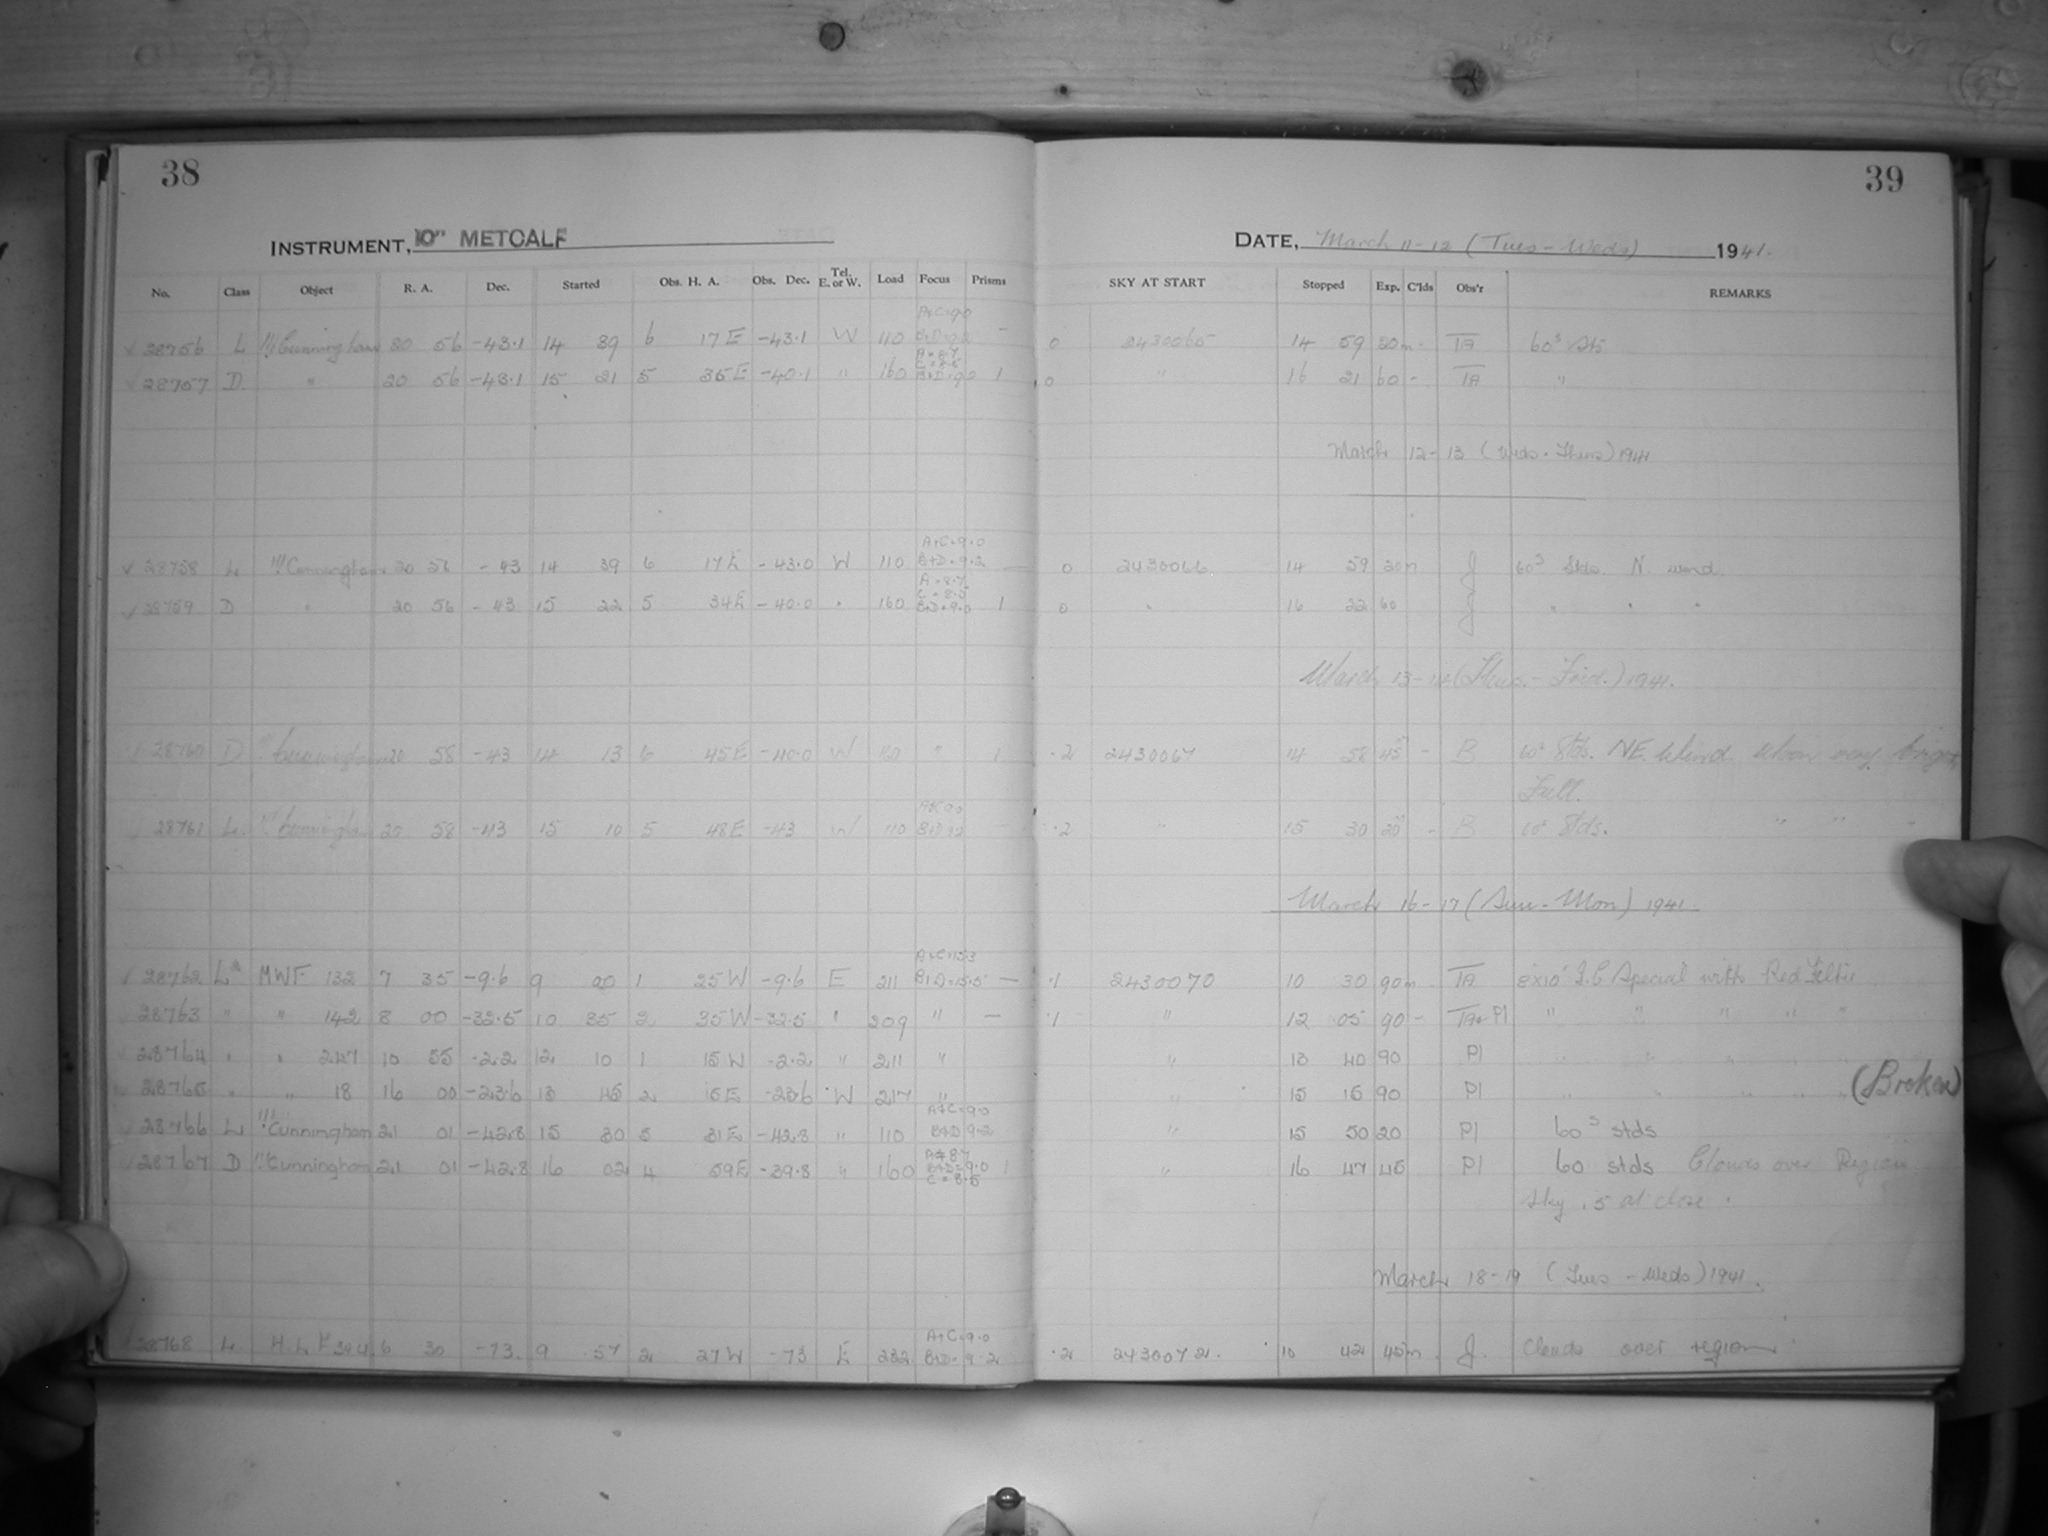 38
39
INSTRUMENT, 10" METCALF
DATE, March 11-12 (Tues - Weds) 1941.
No. Class Object R. A. Dec. Started Obs. H. A. Obs. Dec. Tel. E. or W. Load Focus Prisms SKY AT START Stopped Exp. C'lds Obs'r REMARKS
28756 L !!!Cunningham 20 56 -43.1 14 39 6 17E -43.1 W 110 A+C=9.0 B+D=9.2 - 0 2430065 14 59 20m - TA 60s Sts
28757 D " 20 56 -43.1 15 21 5 35E -40.1 " 160 A=8.7 C=8.5 B+D=9.0 1 0 " 16 21 60 - TA "
March 12-13 (Weds - Thurs) 1941
28758 L !!!Cunningham 20 56 -43 14 39 6 17E -43.0 W 110 A+C=9.0 B+D=9.2 - 0 2430066 14 59 20m J 60s Stds. N. wind.
28759 D " 20 56 -43 15 22 5 34E -40.0 " 160 A=8.7 C=8.5 B+D=9.0 1 0 " 16 22 60 J " " "
March 13-14 (Thus. - Frid.) 1941.
28760 D !!!Cunningham 20 58 -43 14 13 6 45E -40.0 W 160 " 1 .2 2430067 14 58 45m - B 60s Stds. NE. Wind. Moon very bright,
Full.
28761 L. !!!Cunningham 20 58 -43 15 10 5 48E -43 W 110 A+C 9.0 B+D 9.2 - .2 " 15 30 20m - B 60s Stds. " " "
March 16-17 (Sun - Mon) 1941.
28762 L MWF 132 7 35 -9.6 9 00 1 25W -9.6 E 211 A+C=15.3 B+D=15.5 — .1 2430070 10 30 90m - TA 8x10" I.C Special with Red Filter
28763 " " 142 8 00 -32.5 10 35 2 35W -32.5 " 209 " — .1 " 12 05 90 - TA+Pl " " " " "
28764 " " 247 10 55 -2.2 12 10 1 15W -2.2 " 211 " " 13 40 90 Pl " " " " "
28765 " " 18 16 00 -23.6 13 45 2 15E -23.6 W 217 " " 15 15 90 Pl " " " " " (Broken)
28766 L !!!Cunningham 21 01 -42.8 15 30 5 31E -42.8 " 110 A+C=9.0 B+D 9.2 " 15 50 20 Pl 60s stds
28767 D !!!Cunningham 21 01 -42.8 16 02 4 59E -39.8 " 160 A=8.7 B+D=9.0 C=8.5 1 " 16 47 45 Pl 60 stds Clouds over Region
Sky .5 at close.
March 18-19 (Tues - Weds) 1941.
28768 L. 6 30 -73. 9 57 2 27W -73 E 232 A+C=9.0 B+D=9.2 .2 2430072. 10 42 45m. J. Clouds over region